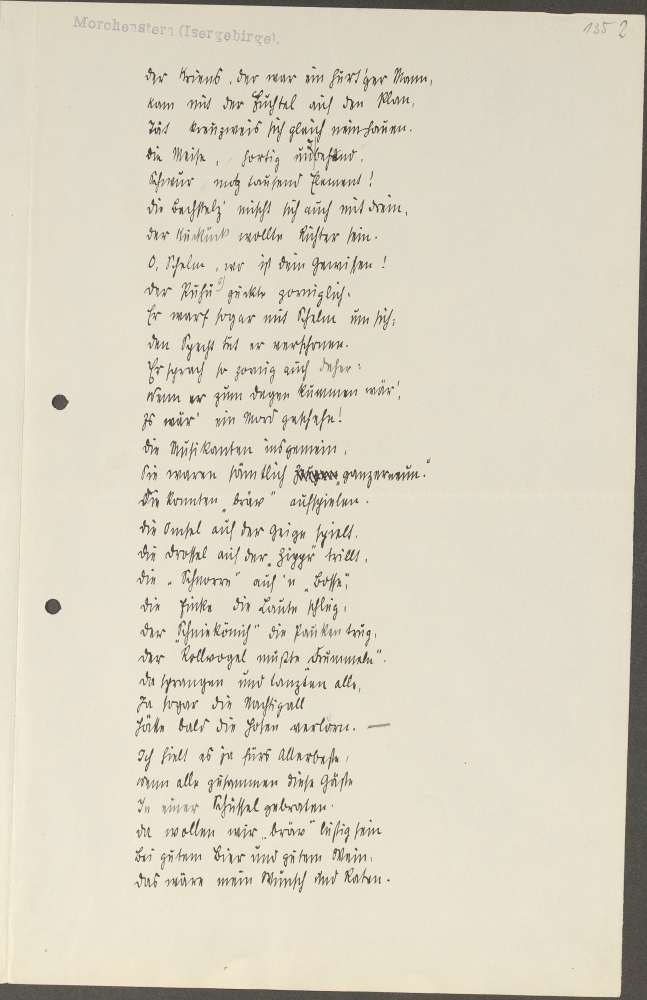 Morchenstern (Isergebirge).
135 2
Der Kriens, der war ein hurt'ger Mann,
kam mit der Fuchtel auf den Plan,
Tät kreuzweis sich gleich neinhauen.
Die Meise, hortig und behend,
Schwur motz tausend Element!
Die Bachstelz' mischt sich auch mit drein,
Der Kuckuck wollte Richter sein.
O, Schelm, wo ist dein Gewissen!
Der Puhu guckte zorniglich.
Er warf sogar mit Schelm um sich;
Den Specht tat er verschonen.
Er sprach so zornig auch daher:
Wenn er zum Degen kummen wär',
Es wär' ein Mord geschehn!
Die Musikanten insgemein,
Sie waren sämtlich ganzerneun."
Sie konnten "bräv" aufspielen.
Die Omsel auf der Geige spielt.
Die Drossel auf der "Zippr" trillt,
Die "Schnorre" auf 'n "Bosse",
Die Finke die Laute schlug,
Der "Schniekönich" die Pauken trug,
Der Rollvogel mußte "drummeln".
Da sprangen und tanzten alle,
Ja sogar die Nachtigall
Hätte bald die Hosen verlorn. —
Ich hielt es ja fürs Allerbeste,
Wenn alle zusammen diese Gäste
In einer Schüssel gebraten.
Da wollen wir "bräv" lustig sein
Bei gutem Bier und gutem Wein.
Das wäre mein Wunsch und Raten.